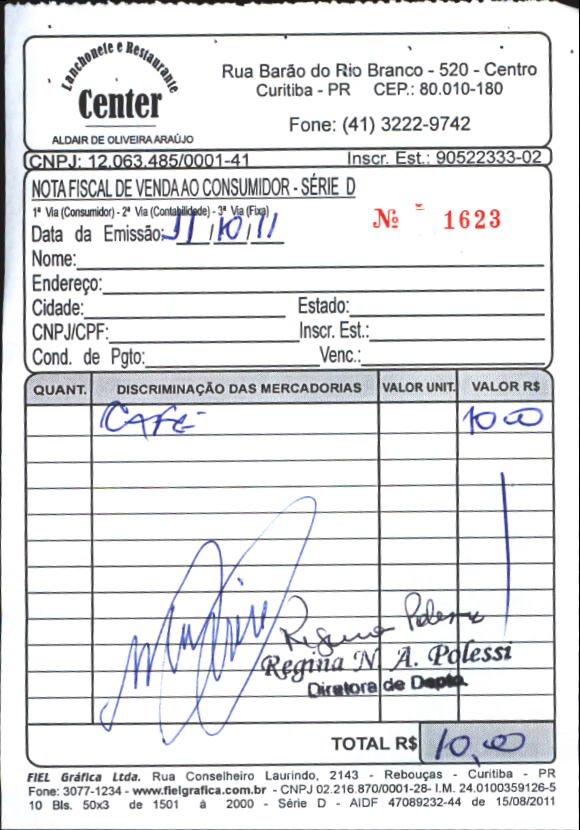 Lanchonete e Restaurante
Center
ALDAIR DE OLIVEIRA ARAÚJO
Rua Barão do Rio Branco - 520 - Centro
Curitiba - PR CEP.: 80.010-180
Fone: (41) 3222-9742
CNPJ: 12.063.485/0001-41 Inscr. Est.: 90522333-02
NOTA FISCAL DE VENDA AO CONSUMIDOR - SÉRIE D
1ª Via (Consumidor) - 2ª Via (Contabilidade) - 3ª Via (Fixa)
Nº 1623
Data da Emissão: 11/10/11
Nome:
Endereço:
Cidade: Estado:
CNPJ/CPF: Inscr. Est.:
Cond. de Pgto: Venc.:
QUANT. DISCRIMINAÇÃO DAS MERCADORIAS VALOR UNIT. VALOR R$
CAFÉ 10 00
Regina Polessi
Regina N. A. Polessi
Diretora de Depto.
TOTAL R$ 10,00
FIEL Gráfica Ltda. Rua Conselheiro Laurindo, 2143 - Rebouças - Curitiba - PR
Fone: 3077-1234 - www.fielgrafica.com.br - CNPJ 02.216.870/0001-28- I.M. 24.0100359126-5
10 Bls. 50x3 de 1501 à 2000 - Série D - AIDF 47089232-44 de 15/08/2011